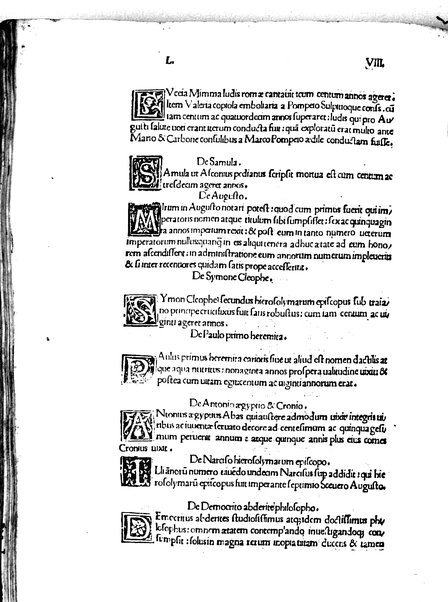 L. VIII.
LVcia Mimma ludis romæ cantauit cum centum annos ageret.
Item Valeria copiola emboliaria a Pompeio Sulpitioque conss. cū
iam centum ac quatuordecim annos superaret: ludis qui pro Au
gusti salute uoti erant iterum conducta fuit: quā exploratū erat multo ante
Mario & Carbone consulibus a Marco Pompeio ædile conductam fuisse.
De Samula.
SAmula ut Asconius pedianus scripsit mortua est cum centum ac
tresdecim ageret annos.
De Augusto.
MIrum in Augusto notari potest: quod cum primus fuerit qui im/
peratoris nomen atque titulum sibi sumpsisset: sex ac quinquagin
ta annos imperium rexit: & post eum in tanto numero ueterum
imperatorum nullusquanq̄ in es aliqui tenera adhuc ætate ad eum hono/
rem ascendissent: in administratione eum annorum numerum impleuerit
& si inter recentiores quidam satis prope accesserint.
De Symone Cleophe.
SYmon Cleophes secundus hierosolymarum episcopus sub traia/
no principe crucifixus fuit satis robustus: cum iam centum ac ui/
ginti ageret annos.
De Paulo primo heremita.
PAulus primus heremita carioris siue ut aliud est nomen dactilis at
que aqua nutritus: nonaginta annos prospera ualitudine uixit: &
postea cum uitam egit centum ac uiginti annorum erat.
De Antonio ægyptio & Cronio.
ANtonius ægyptius Abas qui austere admodum uixit integris ui/
ribus ac iuuentæ seruato decore ad centesimum ac quinquages/
imum peruenit annum: atque quinque annis plus eius comes
Cronius uixit.
De Narciso hierosolymarum episcopo.
ILli annorū numero uiuēdo undeam Narcisus sup addidit: qui hie
rosolymarū episcopus fuit imperante septimio Seuero Augusto.
De Democrito abderite philosopho.
DEmocritus abderites studiosissimus atq; idem doctissimus phi/
losophus: omnem ætatem contemplando inuestigandoq; con/
sumpsit: solus in magna rerum inopia uitam ducens & tamen